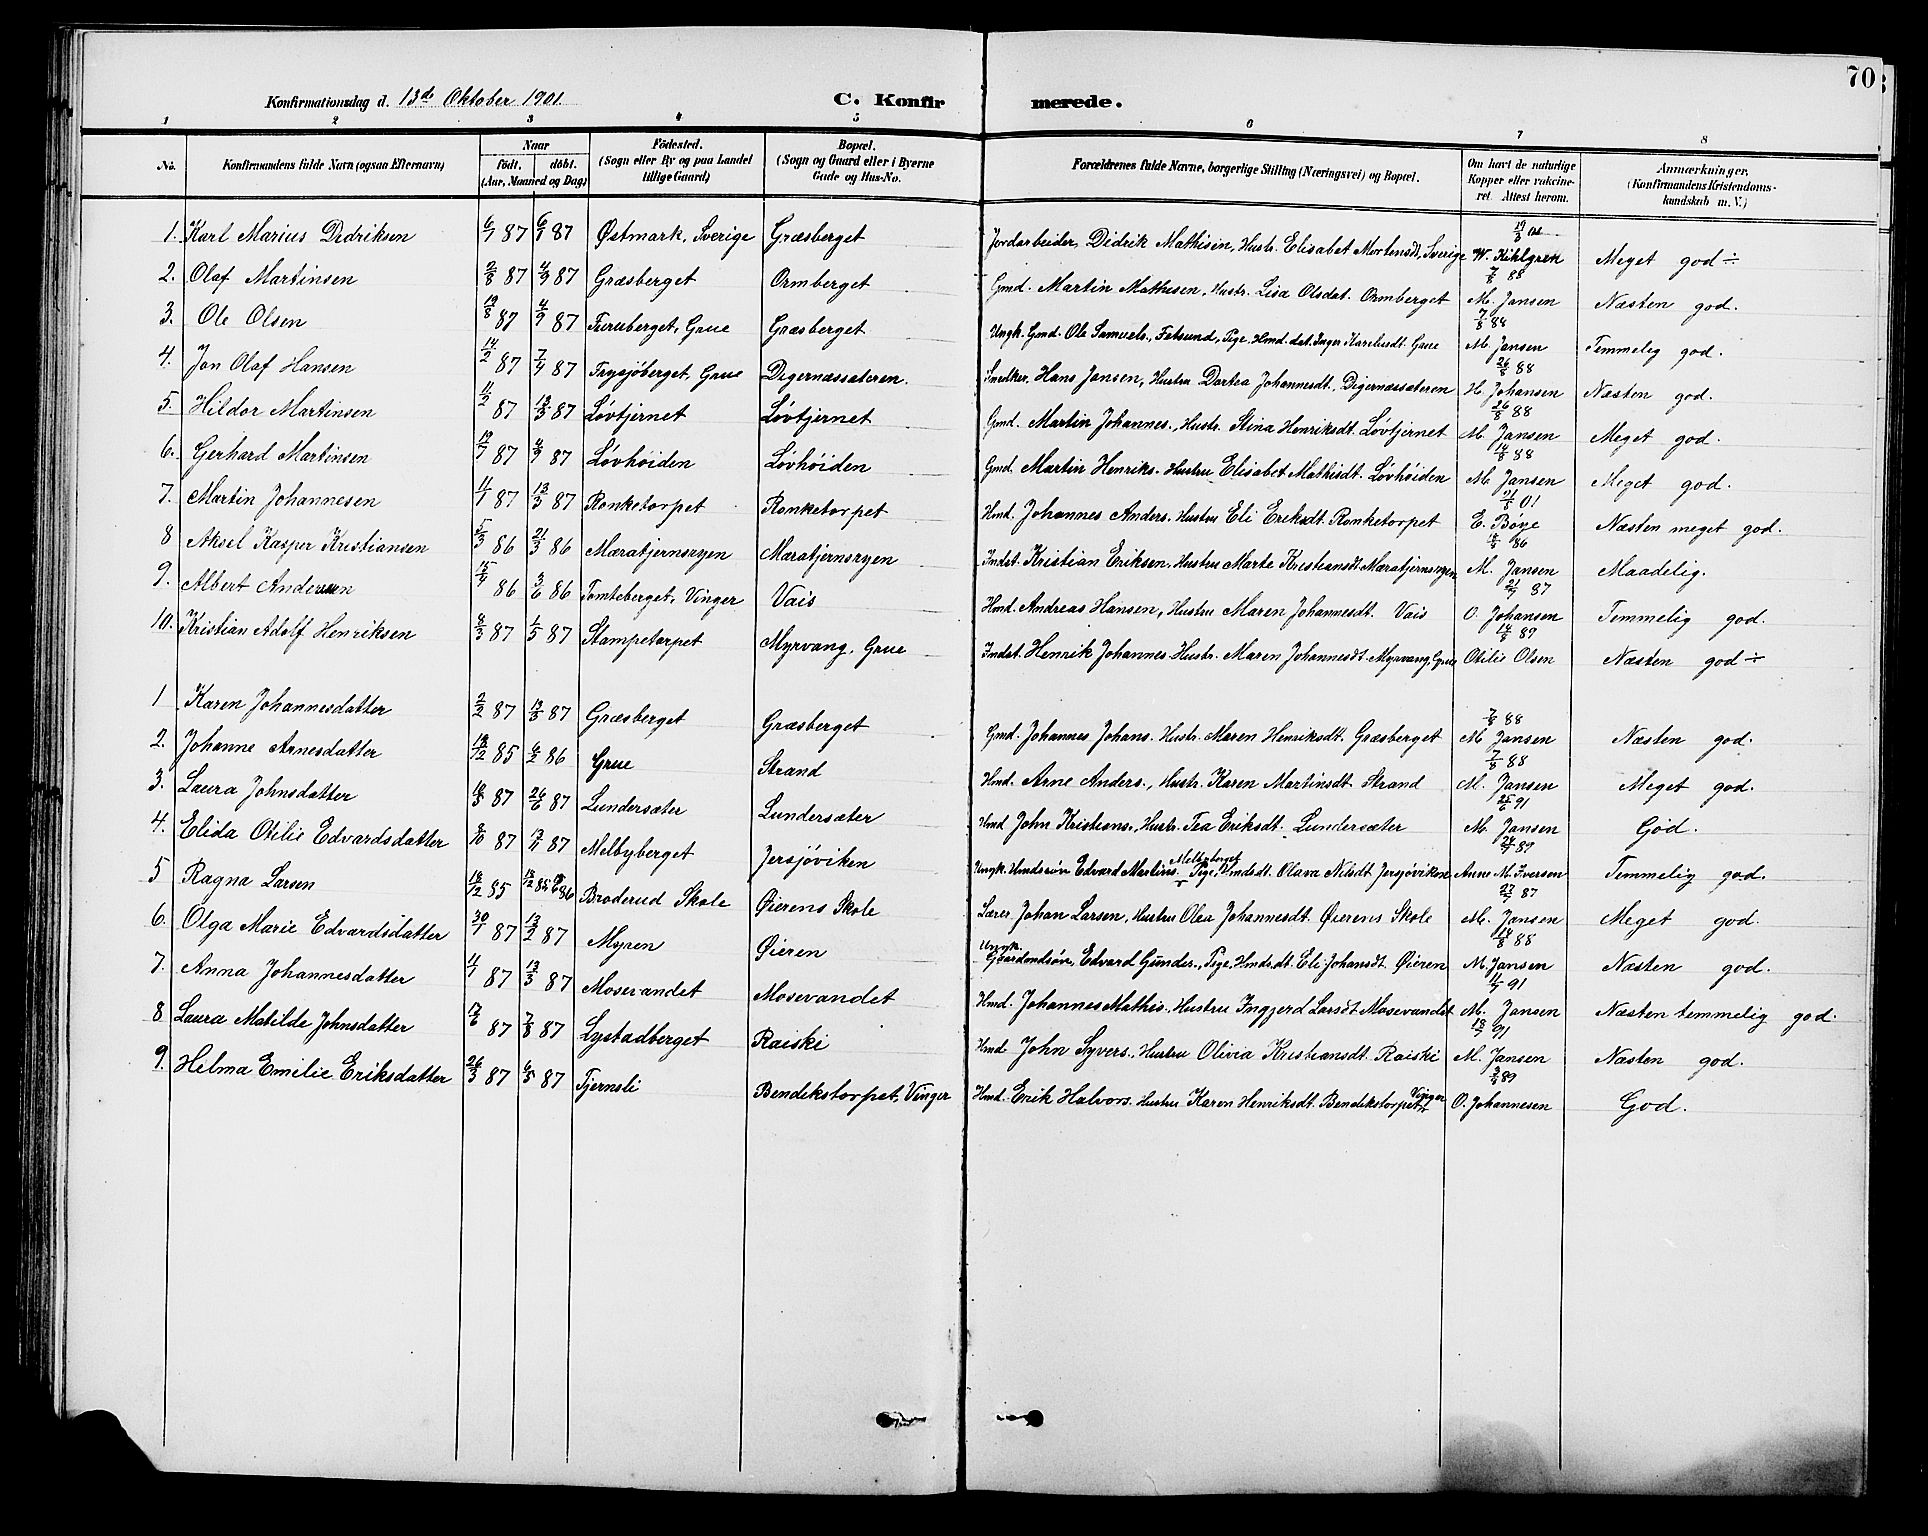 70
Konfirmationsdag d. 13de Oktober 1901. C. Konfirmerede.
1 2 3 4 5 6 7 8
No. Konfirmandens fulde Navn (ogsaa Efternavn) Naar födt. döbt. (Aar, Maaned og Dag) Födested. (Sogn eller By og paa Landet tillige Gaard) Bopæl. (Sogn og Gaard eller i Byerne Gade og Hus-No. Forældrenes fulde Navne, borgerlige Stilling (Næringsvei) og Bopæl. Om havt de naturlige Kopper eller vakcineret. Attest herom. Anmærkninger, (Konfirmandens Kristendomskundskab m. V.)
1. Karl Marius Didriksen 6/1 87 6/1 87 Østmark, Sverige Græsberget Jordarbeider, Didrik Mathisen, Hustr. Elisabet Mortensdt, Sverige 19/3 01 W. Kihlgren Meget god ÷
2. Olaf Martinsen 2/8 87 4/9 87 Græsberget Ormberget Gmd. Martin Mathisen, Hustr. Lisa Olsdat. Ormberget 7/8 88 M. Jansen Næsten god.
3. Ole Olsen 19/8 87 4/9 87 Furuberget, Grue Græsberget Ungk. Gmd. Ole Samuels., Fetsund, Pige. Hmd. dat. Inger Karelusdt. Grue 7/8 88 M. Jansen Temmelig god.
4. Jon Olaf Hansen 14/2 87 7/4 87 Frysjøberget, Grue Digernæssæteren. Smelker, Hans Jansen, Hustru Dortea Johannesdt. Digernæssæteren 26/8 88 H. Johansen Næsten god.
5. Hildor Martinsen 11/2 87 13/3 87 Løvtjernet Løvtjernet Gmd. Martin Johannes., Hustr. Stina Henriksdt. Løvtjernet 26/8 88 M. Jansen Meget god.
6. Gerhard Martinsen 19/7 87 4/9 87 Løvhøiden Løvhøiden Gmd. Martin Henriks. Hustru Elisabet Mathisdt. Løvhøiden 14/8 88 M. Jansen Meget god.
7. Martin Johannesen 11/1 87 13/3 87 Ronketorpet Ronketorpet Hmd. Johannes Anders. Hustru Eli Eriksdt. Ronketorpet 21/8 01 E. Bøye Næsten meget god.
8 Aksel Kasper Kristiansen 5/3 86 21/3 86 Mæratjernsryen Mæratjernsryen Indst. Kristian Eriksen, Hustru Marte Kristiansdt. Mæratjernsryen 18/9 86 M. Jansen Maadelig.
9. Albert Andersen 15/4 86 3/6 86 Tomteberget, Vinger Vais Hmd. Andreas Hansen, Hustru Maren Johannesdt. Vais 21/9 87 O. Johansen Temmelig god.
10. Kristian Adolf Henriksen 8/3 87 1/5 87 Stampetorpet Myrvang, Grue Indst. Henrik Johannes. Hustr. Maren Johannesdt. Myrvang, Grue 14/8 89 Otilie Olsen Næsten god ÷
1 Karen Johannesdatter 2/2 87 13/3 87 Græsberget Græsberget Gmd. Johannes Johans. Hustr. Maren Henriksdt. Græsberget 7/8 88 M. Jansen Næsten god.
2. Johanne Arnesdatter 18/12 85 6/2 86 Grue Strand Hmd. Arne Anders., Hustr. Karen Martinsdt. Strand 7/8 88 M. Jansen Meget god.
3. Laura Johnsdatter 18/5 87 26/6 87 Lundersæter Lundersæter Hmd John Kristians., Hustr. Tea Eriksdt. Lundersæter 25/6 91 M. Jansen God.
4. Elida Otilie Edvardsdatter 8/10 87 17/11 87 Melbyberget Jersjøviken Ungk. Hmdssøn Edvard Martins. Melbyberget Pige, Hmdsdt. Olava Nilsdt Jersjøviken 24/9 89 Anne M. Iversen Temmelig god.
5 Ragna Larsen 18/12 85 18/12 85 13/6 86 Broderud Skole Øierens Skole Lærer Johan Larsen, Hustru Olea Johannesdt. Øierens Skole 27/7 87 M. Jansen Meget god.
6. Olga Marie Edvardsdatter 30/1 87 13/2 87 Mypen Øieren Ungk. Gaardmdsøn, Edvard Gunder., Pige, Hmdsdt. Eli Johansdt. Øieren 14/8 88 M. Jansen Næsten god.
7. Anna Johannesdatter 11/1 87 13/3 87 Mosevandet Mosevandet Hmd. Johannes Mathis. Hustru Ingjerd Larsdt Mosevandet 11/7 91 M. Jansen Næsten temmelig god.
8 Laura Matilde Johnsdatter 17/6 87 7/8 87 Lystadberget Raiski Hmd. John Syvers., Hustru Olivia Kristiansdt. Raiski 18/7 91 M. Jansen Næsten god.
9. Helma Emilie Eriksdatter 26/3 87 6/5 87 Tjernsli Bendikstorpet, Vinger Hmd. Erik Halvors. Hustru Karen Henriksdt. Bendikstorpet Vinger 3/9 89 O. Johannesen God.